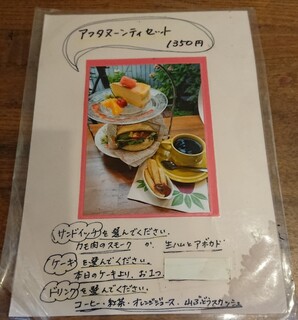 アフタヌーンティセット
1350円
サンドイッチを選んでください.
カモ肉のスモーク か. 生ハムとアボカド
ケーキを選んでください.
本日のケーキより、お1つ
ドリンクを選んでください.
コーヒー・紅茶・オレンジジュース・山ぶどうスカッシュ